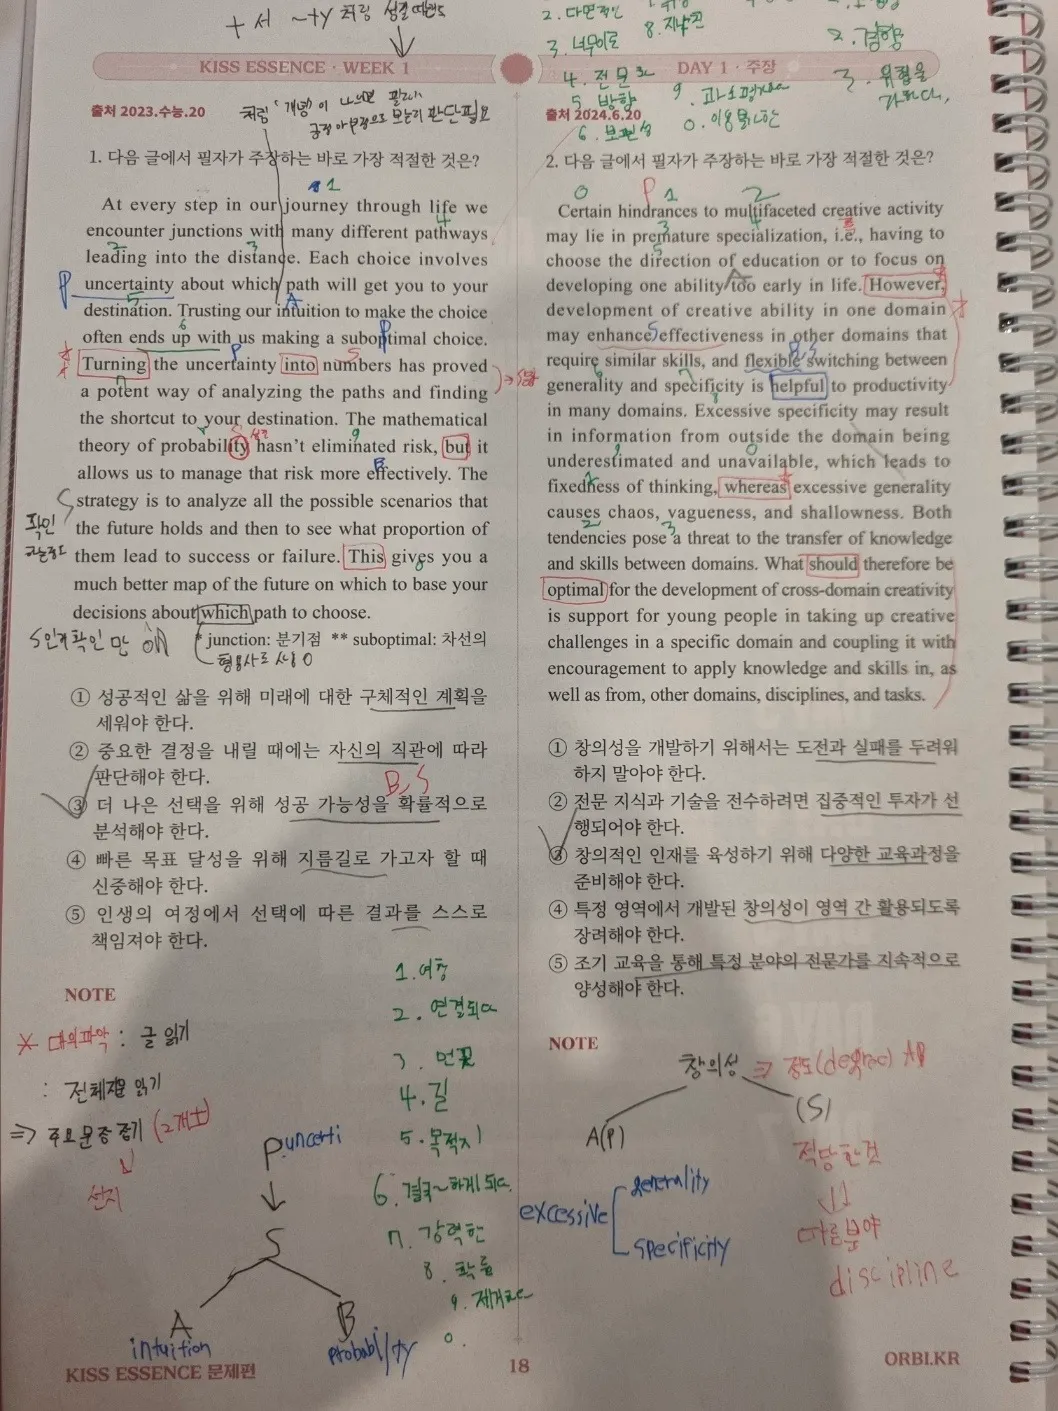 + 서 ~ty 처럼
2. 다면적인
3.
8.
KISS ESSENCE · WEEK 1
DAY 1 · 주장
4. 전문
5. 방향
6. 보편성
9. 과소평가
0. 이용불가한
2. 경향
3. 위협을
출처 2023.수능.20
처럼 '개념'이 나오면
판단필요
1. 다음 글에서 필자가 주장하는 바로 가장 적절한 것은?
At every step in our journey through life we
encounter junctions with many different pathways
leading into the distance. Each choice involves
uncertainty about which path will get you to your
destination. Trusting our intuition to make the choice
often ends up with us making a suboptimal choice.
Turning the uncertainty into numbers has proved
a potent way of analyzing the paths and finding
the shortcut to your destination. The mathematical
theory of probability hasn't eliminated risk, but it
allows us to manage that risk more effectively. The
strategy is to analyze all the possible scenarios that
the future holds and then to see what proportion of
them lead to success or failure. This gives you a
much better map of the future on which to base your
decisions about which path to choose.
확인
S인거 확인 만
* junction: 분기점 ** suboptimal: 차선의
형용사로 사용
① 성공적인 삶을 위해 미래에 대한 구체적인 계획을
세워야 한다.
② 중요한 결정을 내릴 때에는 자신의 직관에 따라
판단해야 한다.
B, S
③ 더 나은 선택을 위해 성공 가능성을 확률적으로
분석해야 한다.
④ 빠른 목표 달성을 위해 지름길로 가고자 할 때
신중해야 한다.
⑤ 인생의 여정에서 선택에 따른 결과를 스스로
책임져야 한다.
NOTE
* 대의파악 : 글 읽기
: 전체 읽기
⇒ 주요문장 찾기 (2개)
선지
P uncerti
S
A
B
intuition
probability
1. 여정
2. 연결되다
3. 먼곳
4. 길
5. 목적지
6. 결국~하게 되다.
7. 강력한
8. 확률
9. 제거하다
0.
출처 2024.6.20
2. 다음 글에서 필자가 주장하는 바로 가장 적절한 것은?
Certain hindrances to multifaceted creative activity
may lie in premature specialization, i.e., having to
choose the direction of education or to focus on
developing one ability too early in life. However,
development of creative ability in one domain
may enhance effectiveness in other domains that
require similar skills, and flexible switching between
generality and specificity is helpful to productivity
in many domains. Excessive specificity may result
in information from outside the domain being
underestimated and unavailable, which leads to
fixedness of thinking, whereas excessive generality
causes chaos, vagueness, and shallowness. Both
tendencies pose a threat to the transfer of knowledge
and skills between domains. What should therefore be
optimal for the development of cross-domain creativity
is support for young people in taking up creative
challenges in a specific domain and coupling it with
encouragement to apply knowledge and skills in, as
well as from, other domains, disciplines, and tasks.
① 창의성을 개발하기 위해서는 도전과 실패를 두려워
하지 말아야 한다.
② 전문 지식과 기술을 전수하려면 집중적인 투자가 선
행되어야 한다.
③ 창의적인 인재를 육성하기 위해 다양한 교육과정을
준비해야 한다.
④ 특정 영역에서 개발된 창의성이 영역 간 활용되도록
장려해야 한다.
⑤ 조기 교육을 통해 특정 분야의 전문가를 지속적으로
양성해야 한다.
NOTE
창의성 ⇒ 정도(degree)
A(P)
(S)
적당한것
excessive
generality
specificity
다른분야
discipline
KISS ESSENCE 문제편
18
ORBI.KR